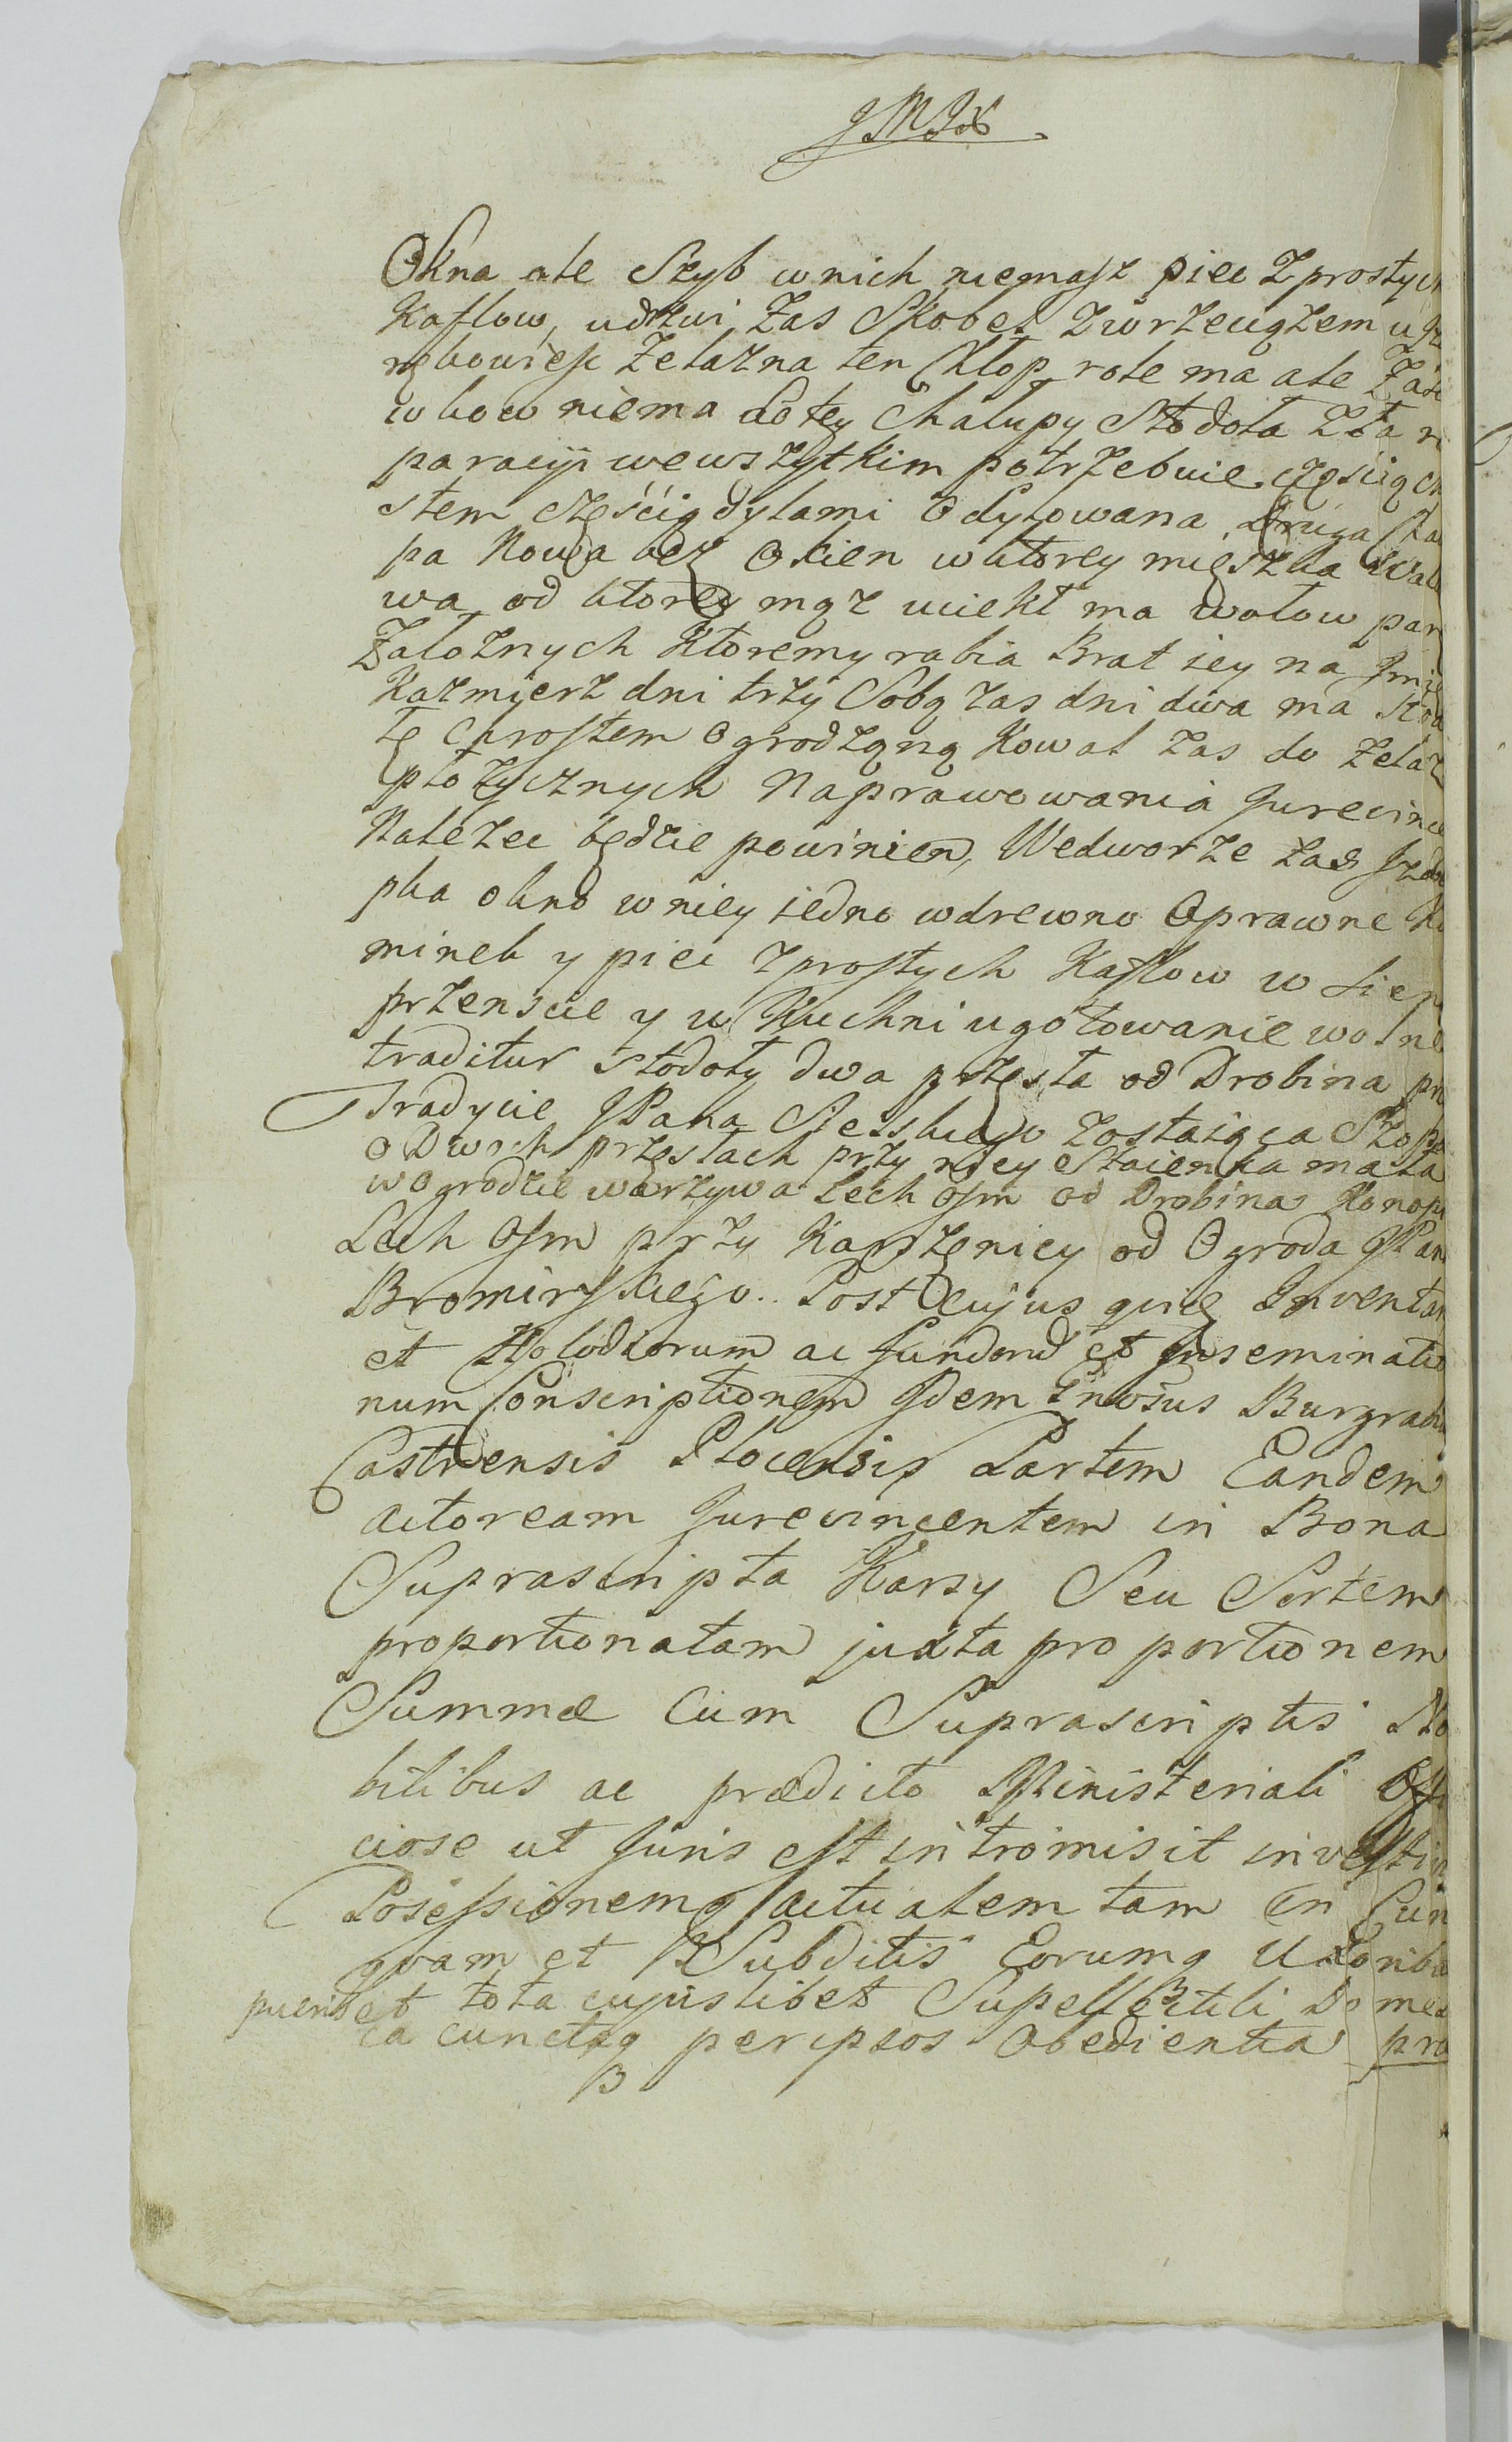 Okna ale Szyb w nich niemasz piec z prostych
Kaflow, udrzwi zas Skobel z wrzeciązem u
zelazna ten Chłop role ma ale Zasie
wkow niema do tey Chałupy Stodoła zła re
paracyi wewszytkim potrzebuie częścią ch
stem częścią dylami Odylowana Druga Cha
pa Nowa bez okien wktorey mięszka Wdo
wa od ktorey mąz uciekł ma wołow parę
Załoznych Ktoremy rabia Brat iey na
Kazmierz dni trzy Sobą zas dni dwa ma Stod
łę Chrostem Ogrodząną Kowal zas do Zelaz
płozycznych Naprawowania Jurevince
Nalezec będzie powinien, Wedworze zas Izde
pka okno w niey iedno wdrewno Oprawne Ko
minek y piec z prostych Kaflow w Sien
przenscie y w Kuchni ugotowanie wolne
traditur Stodoły dwa przęsła od Drobina pr
Tradycie JPana zostaiąca Szopa
o Dwoch przęsłach przy niey Staienka mała
w Ogrodzie warzywa Lech osm od Drobina Konopi
Lech Osm przy Karszenicy od Ogroda JPana
Bromirskiego. Post cujus Inventar
et ac fundorum et Inseminatio
num Conscriptionem Idem Burgrabi
Castrensis Plocensis Partem Eandem
actoream Jurevincentem in Bona
Suprascripta Karsy Seu Sortem
proportionatam juxta proportionem
Summæ Cum Suprascriptis No
bilibus ac prædicto Ministeriali Offi
ciose ut Juris est intromisit
Possessionemq actualem tam in Fun
quam et Subditis Eorumq Uxoribu
pueris et tota cujuslibet Supellectili Domes
ca cunctaq per ipsos Obedientia pra
B